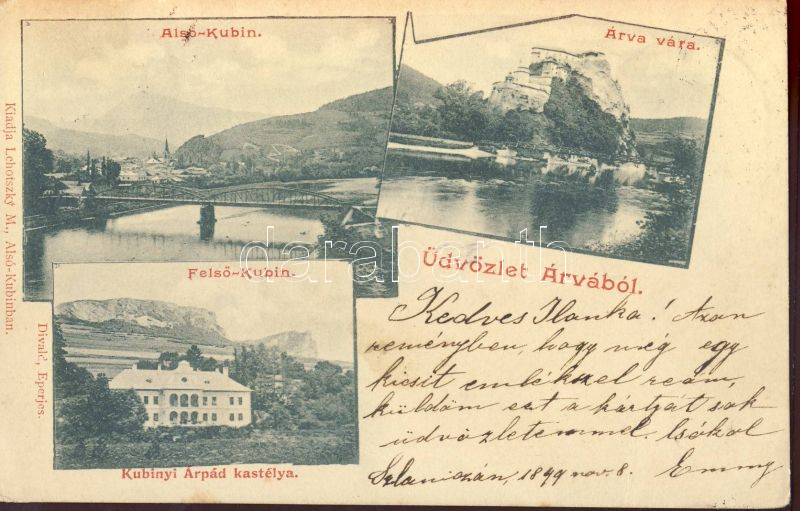 Alsó-Kubin.
Árva vára.
Kiadja Lehotszký M., Alsó-Kubinban.
Divald, Eperjes.
darabanth
Felső-Kubin.
Üdvözlet Árvából.
Kubinyi Árpád kastélya.
Kedves Ilonka! Azon
reményben, hogy még egy
kicsit emlékezel reám,
küldöm ezt a kártyát sok
üdvözletemmel. Csókol
1899 nov. 8. Emmy